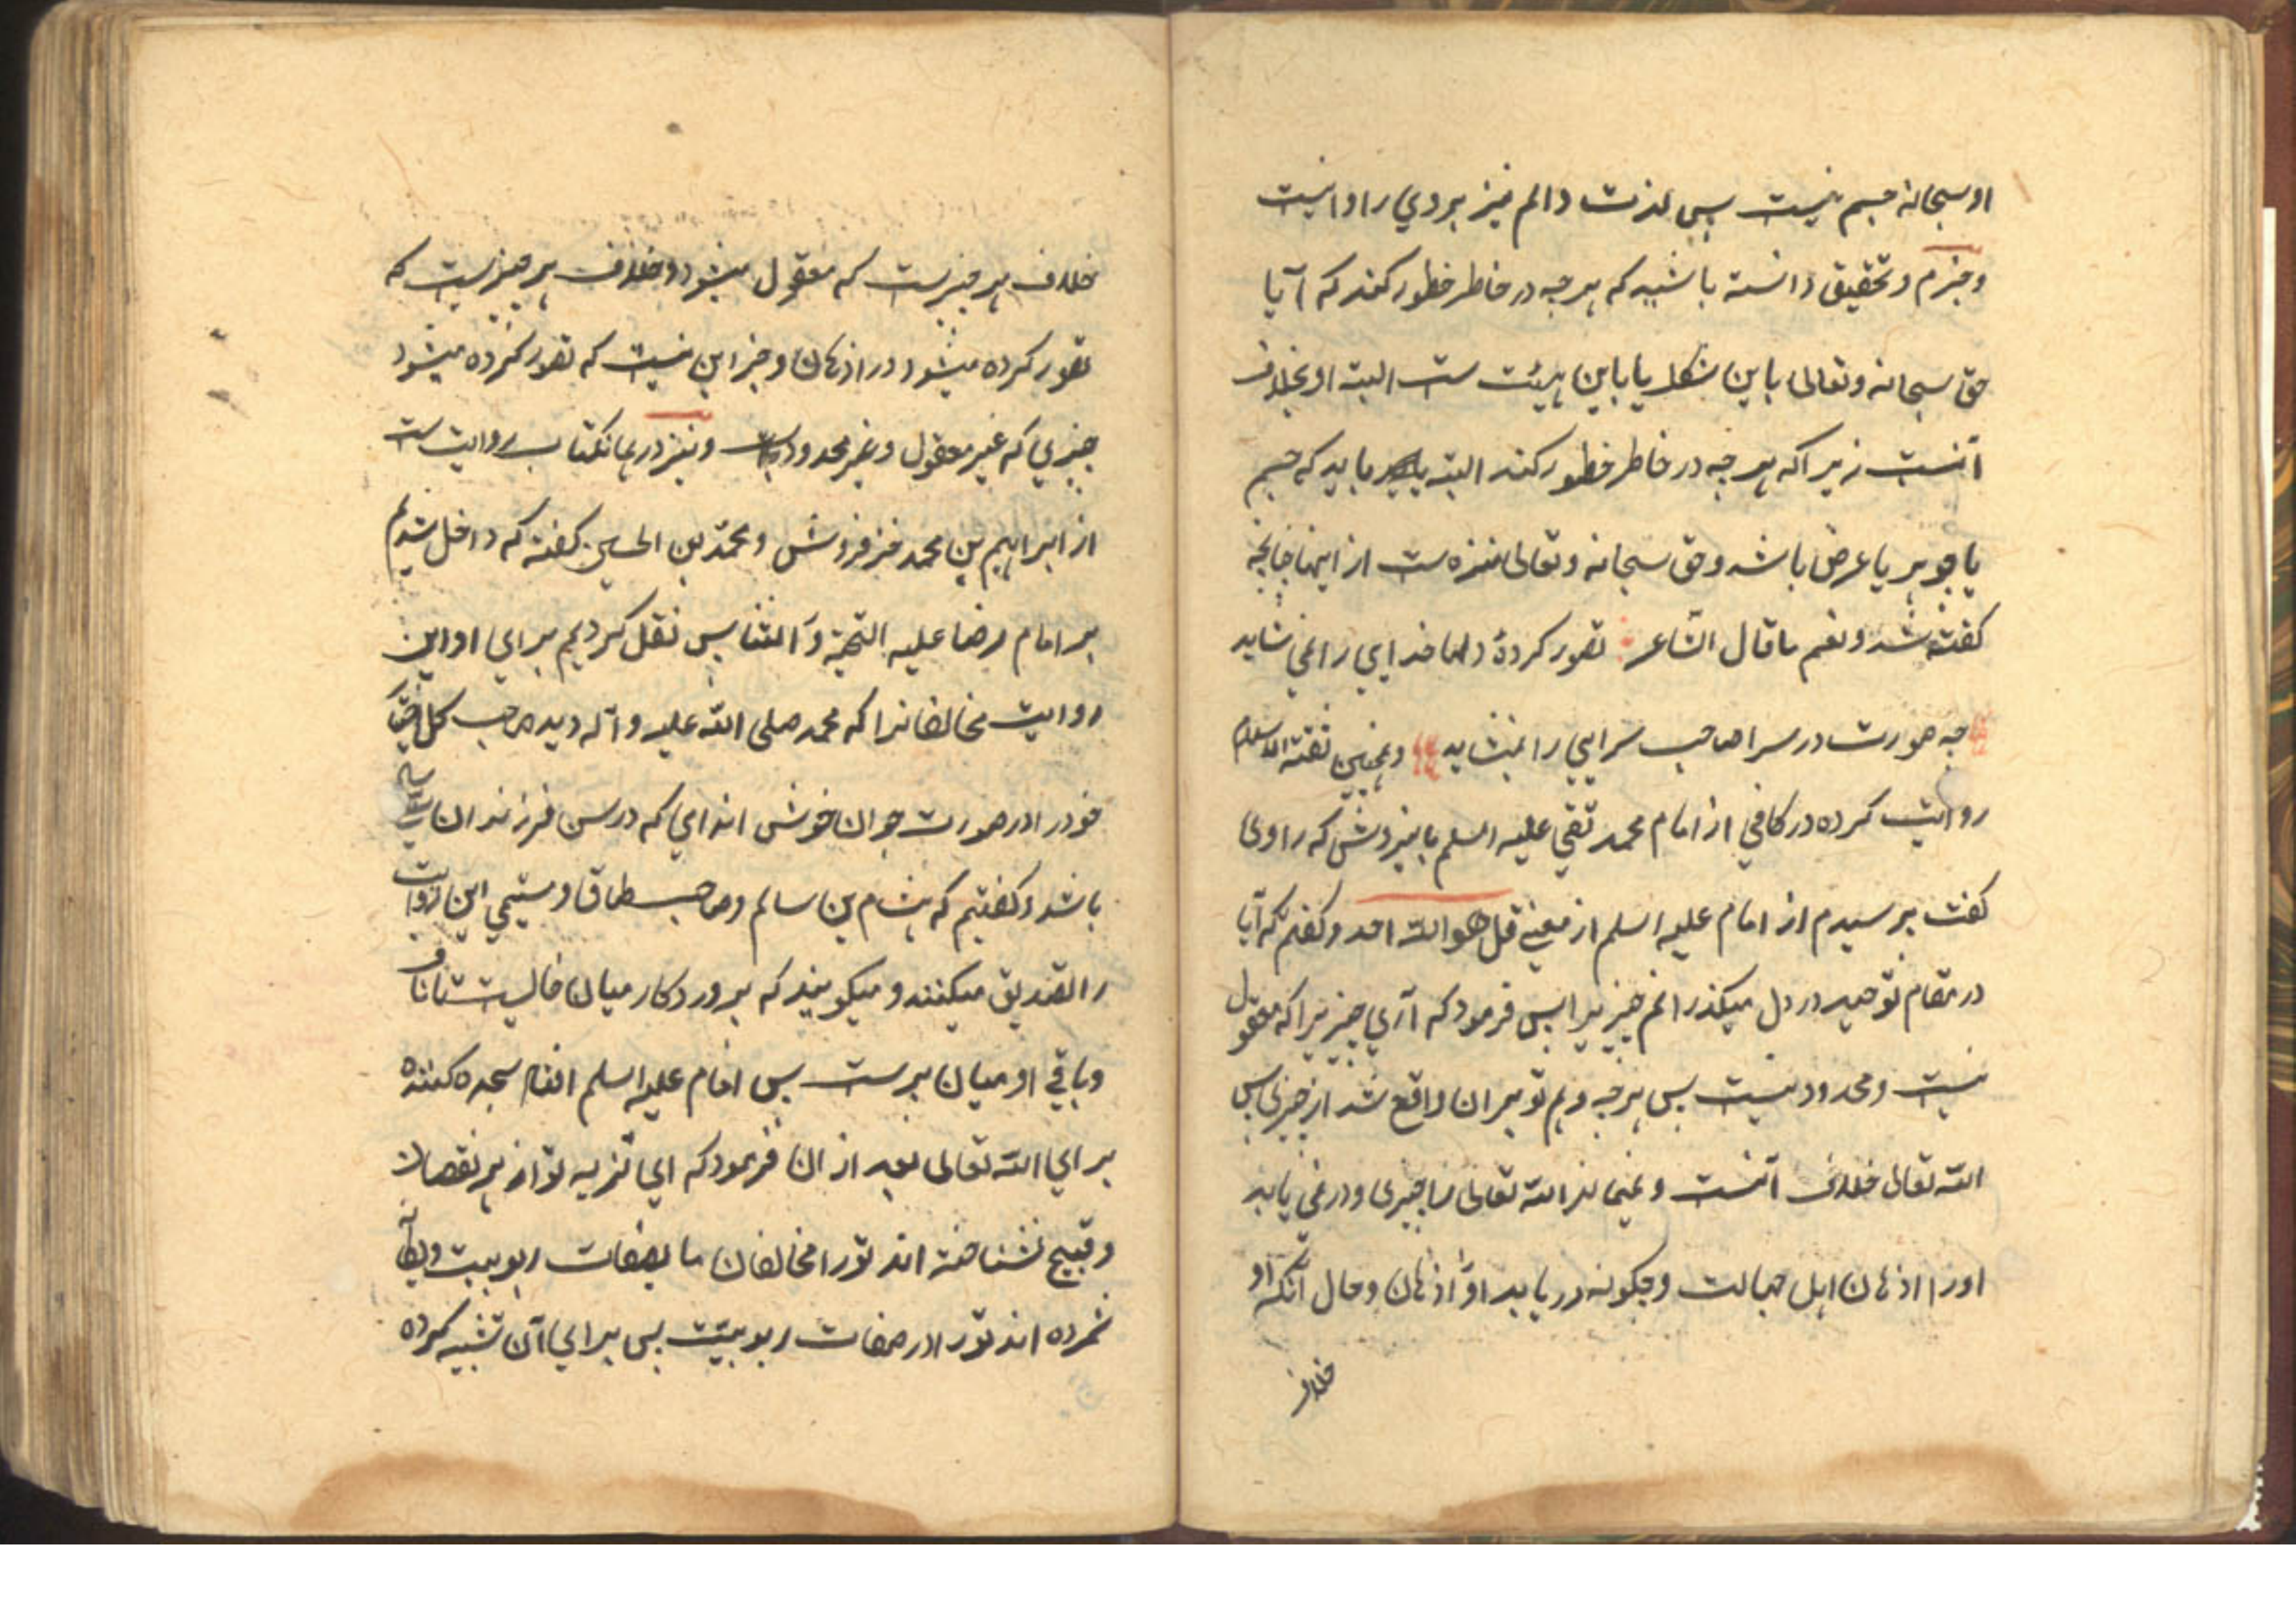 او سبحانه جسم نیست پس لذت و الم نیز بر وی روا نیست
و جزم و تحقیق دانسته باشید که هر چه در خاطر خطور کند که آیا
حق سبحانه و تعالی باین شکل یا باین هیئت ست البته او بخلاف
آنست زیرا که هر چه در خاطر خطور کند البته باید که جسم
یا جوهر یا عرض باشد و حق سبحانه و تعالی منزه ست از اینها چنانچه
کفته شد و نعم ما قال الشاعر تصور کردهٔ دلها خدایی را نمی شاید
چه صورت در سرا صاحب سرایی را نمیشاید و همچنین ثقة الاسلام
روایت کرده در کافی از امام محمد تقی علیه السلم باینروش که راوی
کفت پرسیدم از امام علیه السلم از معنی قل هو الله احد و کفتم که آیا
در مقام توحید در دل میکذرانم چیزیرا پس فرمود که آری چیزیرا که معقول
نیست و محدود نیست پس هر چه وهم تو بر ان واقع شد از چیزی پس
الله تعالی خلاف آنست و نمیماند الله تعالی را چیزی و در نمی یابد
اورا اذهان اهل جهالت و چکونه در یابد او را اذهان و حال آنکه او
خلاف
خلاف هر چیزیست که معقول میشود و خلاف هر چیزیست که
تصور کرده میشود در اذهان و جز این نیست که تصور کرده میشود
چیزی که غیر معقول و غیر محدود است و نیز در همانکتاب روایت ست
از ابراهیم بن محمد خز فروش و محمد بن الحسین کفته که داخل شدیم
بر امام رضا علیه التحیة و الثنا پس نقل کردیم برای او این
روایت مخالفانرا که محمد صلی الله علیه و آله دید صاحب کل اختیار
خود را در صورت جوان خوش اندامی که در سن فرزندان سی ساله
باشد و کفتیم که هشام بن سالم و صاحب طاق و میثمی این روایت
را تصدیق میکنند و میکویند که پروردکار میان خالیست تا ناف
و باقی او میان پرست پس امام علیه السلم افتاد سجده کننده
برای الله تعالی بعد از ان فرمود که ای تنزیه تو از هر نقصان
و قبیح نشناخته اند تو را مخالفان ما بصفات ربوبیت و یکانه
نشمرده اند تو را در صفات ربوبیّت پس برای آن تشبیه کرده